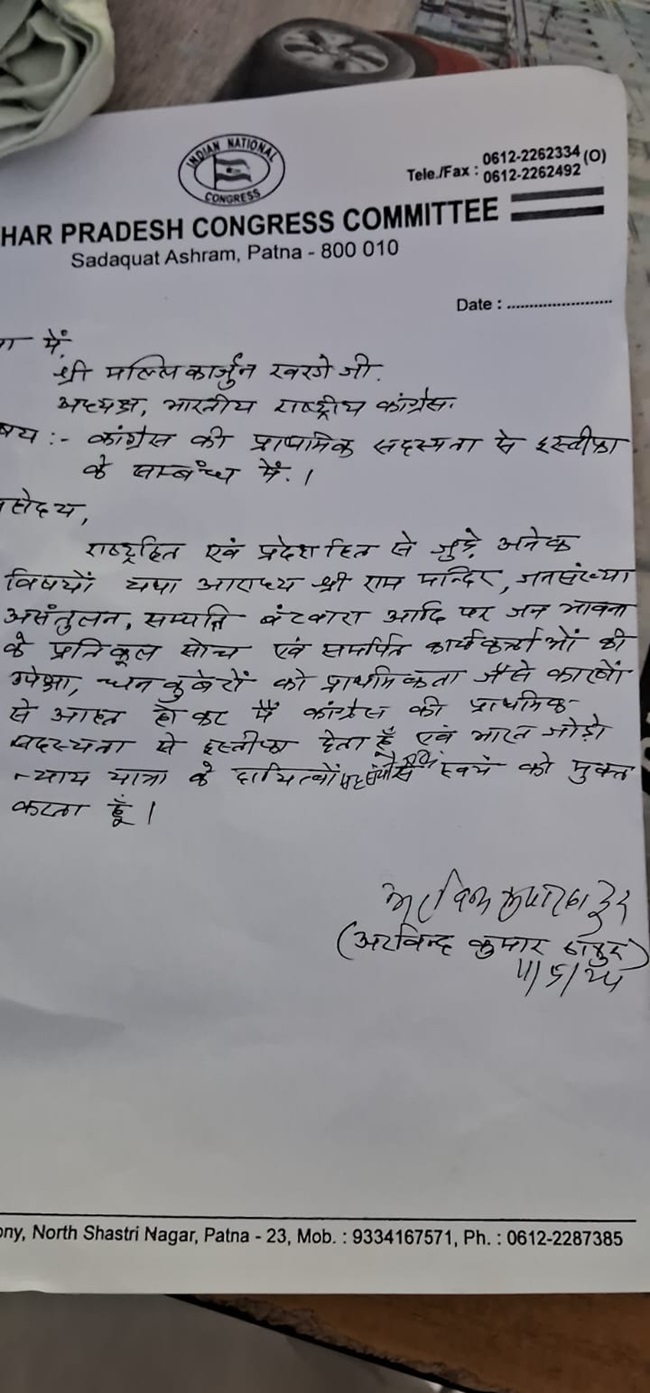 INDIAN NATIONAL
CONGRESS
Tele./Fax : 0612-2262334 (O)
0612-2262492
HAR PRADESH CONGRESS COMMITTEE
Sadaquat Ashram, Patna - 800 010
Date : ........................
में,
श्री मल्लिकार्जुन खरगे जी.
अध्यक्ष, भारतीय राष्ट्रीय कांग्रेस.
षय :- कांग्रेस की प्राथमिक सदस्यता से इस्तीफा
के सम्बंध में. ।
महोदय,
राष्ट्रहित एवं प्रदेशहित से जुड़े अनेक
विषयों यथा आराध्य श्री राम मन्दिर, जनसंख्या
असंतुलन, सम्पत्ति बंटवारा आदि पर जन भावना
के प्रतिकूल सोच एवं समर्पित कार्यकर्त्ताओं की
उपेक्षा, धन कुबेरों को प्राथमिकता जैसे कारणों
से आहत हो कर मैं कांग्रेस की प्राथमिक
सदस्यता से इस्तीफा देता हूँ एवं भारत जोड़ो
न्याय यात्रा के दायित्वों स्वयं को मुक्त
करता हूँ ।
अरविन्द कुमार ठाकुर
(अरविन्द कुमार ठाकुर)
11/5/24
ony, North Shastri Nagar, Patna - 23, Mob. : 9334167571, Ph. : 0612-2287385